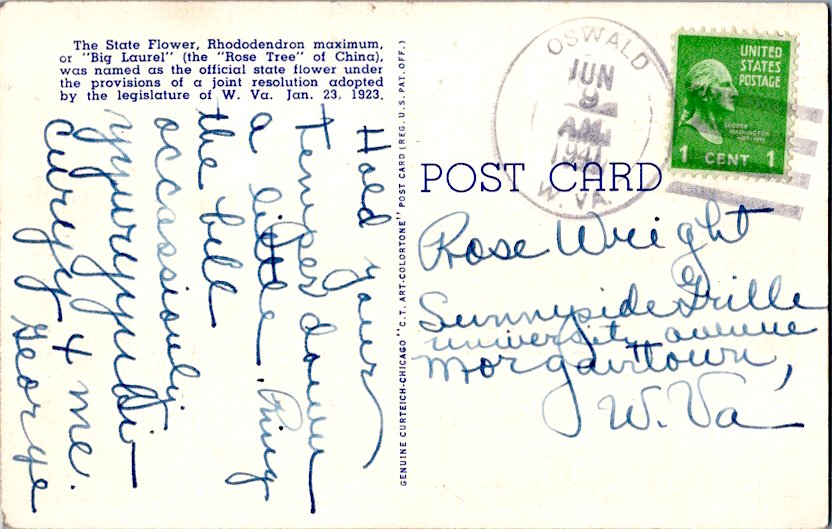 The State Flower, Rhododendron maximum,
or "Big Laurel" (the "Rose Tree" of China),
was named as the official state flower under
the provisions of a joint resolution adopted
by the legislature of W. Va. Jan. 23, 1923.
Hold your
temper down
a little. Ring
the bell
occassionly.
Curgy & me.
George
GENUINE CURTEICH-CHICAGO "C. T. ART-COLORTONE" POST CARD (REG. U. S. PAT. OFF.)
OSWALD
JUN
9
AM
1941
W. VA.
UNITED
STATES
POSTAGE
GEORGE
WASHINGTON
1 CENT 1
POST CARD
Rose Wright
Sunnyside Grille
university avenue
Morgantown,
W. Va